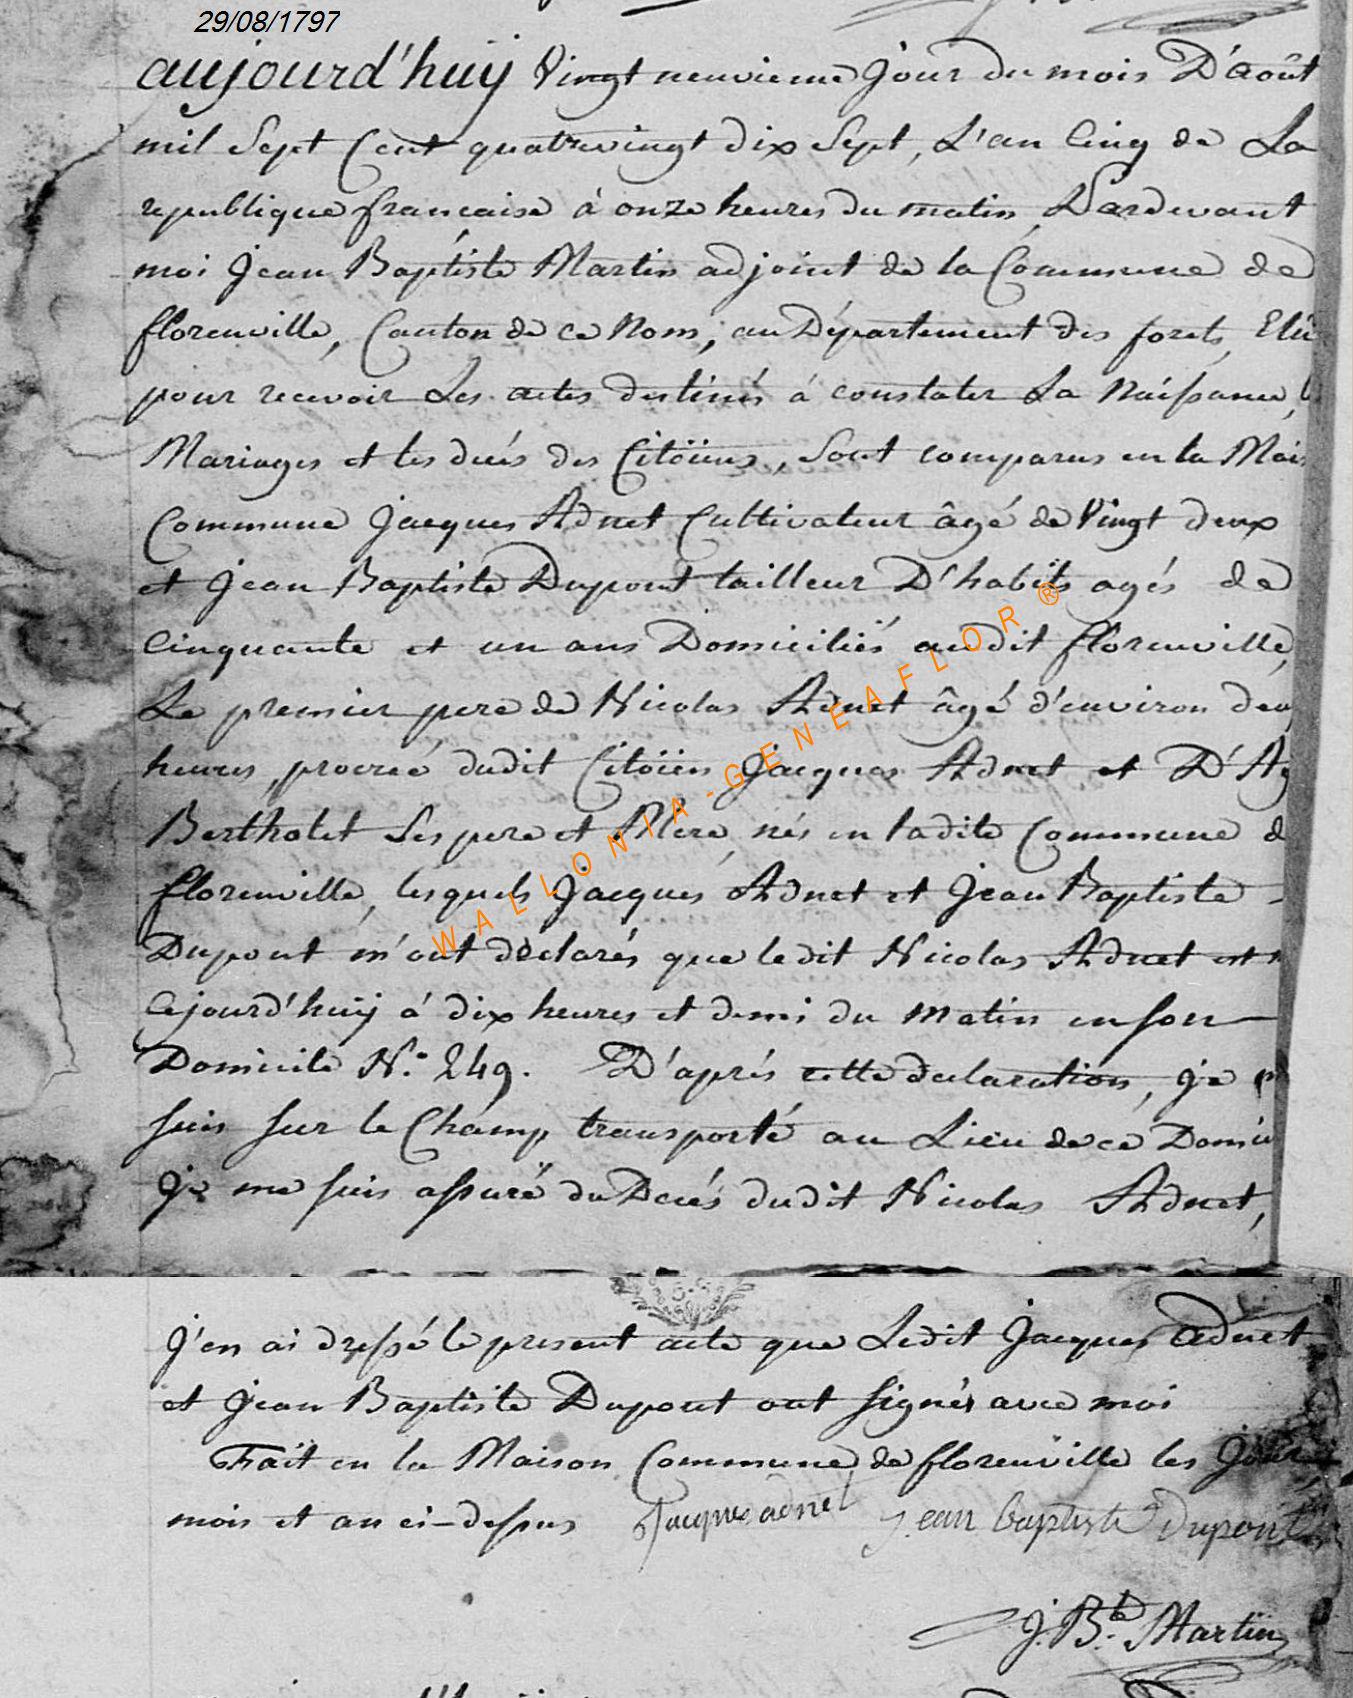 29/08/1797
aujourd'huÿ Vingt neuvieme Jour du mois D'août
mil Sept Cent quatrevingt dix Sept, L'an Cinq de La
republique francaise à onze heures du matin, Pardevant
moi Jean Baptiste Martin adjoint de la Commune de
florenville, Canton de ce Nom, au Département des forets, Elû
pour recevoir Les actes destinés á constater La Naissance,
Mariages et les decés des Citöiens, Sont comparus en la Mais
Commune Jacques Adnet Cultivateur âgé de Vingt deux
et Jean Baptiste Dupont tailleur D'habits agés de
Cinquante et un ans Domiciliés audit florenville,
Le premier pere de Nicolas Adnet âgé d'environ deu
heures, procréé dudit Citöien Jacques Adnet et D'Ag
Bertholet Ses pere et Mere, nés en ladite Commune d
florenville, lesquels Jacques Adnet et Jean Baptiste
Dupont m'ont déclarés que ledit Nicolas Adnet est
Cejourd'huÿ á dix heures et demi du matin en son
Domicile N.° 249. D'aprés cette declaration, je
suis sur le Champ transporté au Lieu de ce Domic
Je me suis assuré du Decés dudit Nicolas Adnet,
J'en ai dressé le present acte que Ledit Jacques Adnet
et Jean Baptiste Dupont ont signés avec moi
Fait en la Maison Commune de florenville les Jour,
mois et an ci-dessus Jacques adnet Jean baptiste Dupont
J. B.te Martin
WALLONIA-GENEAFLOR®